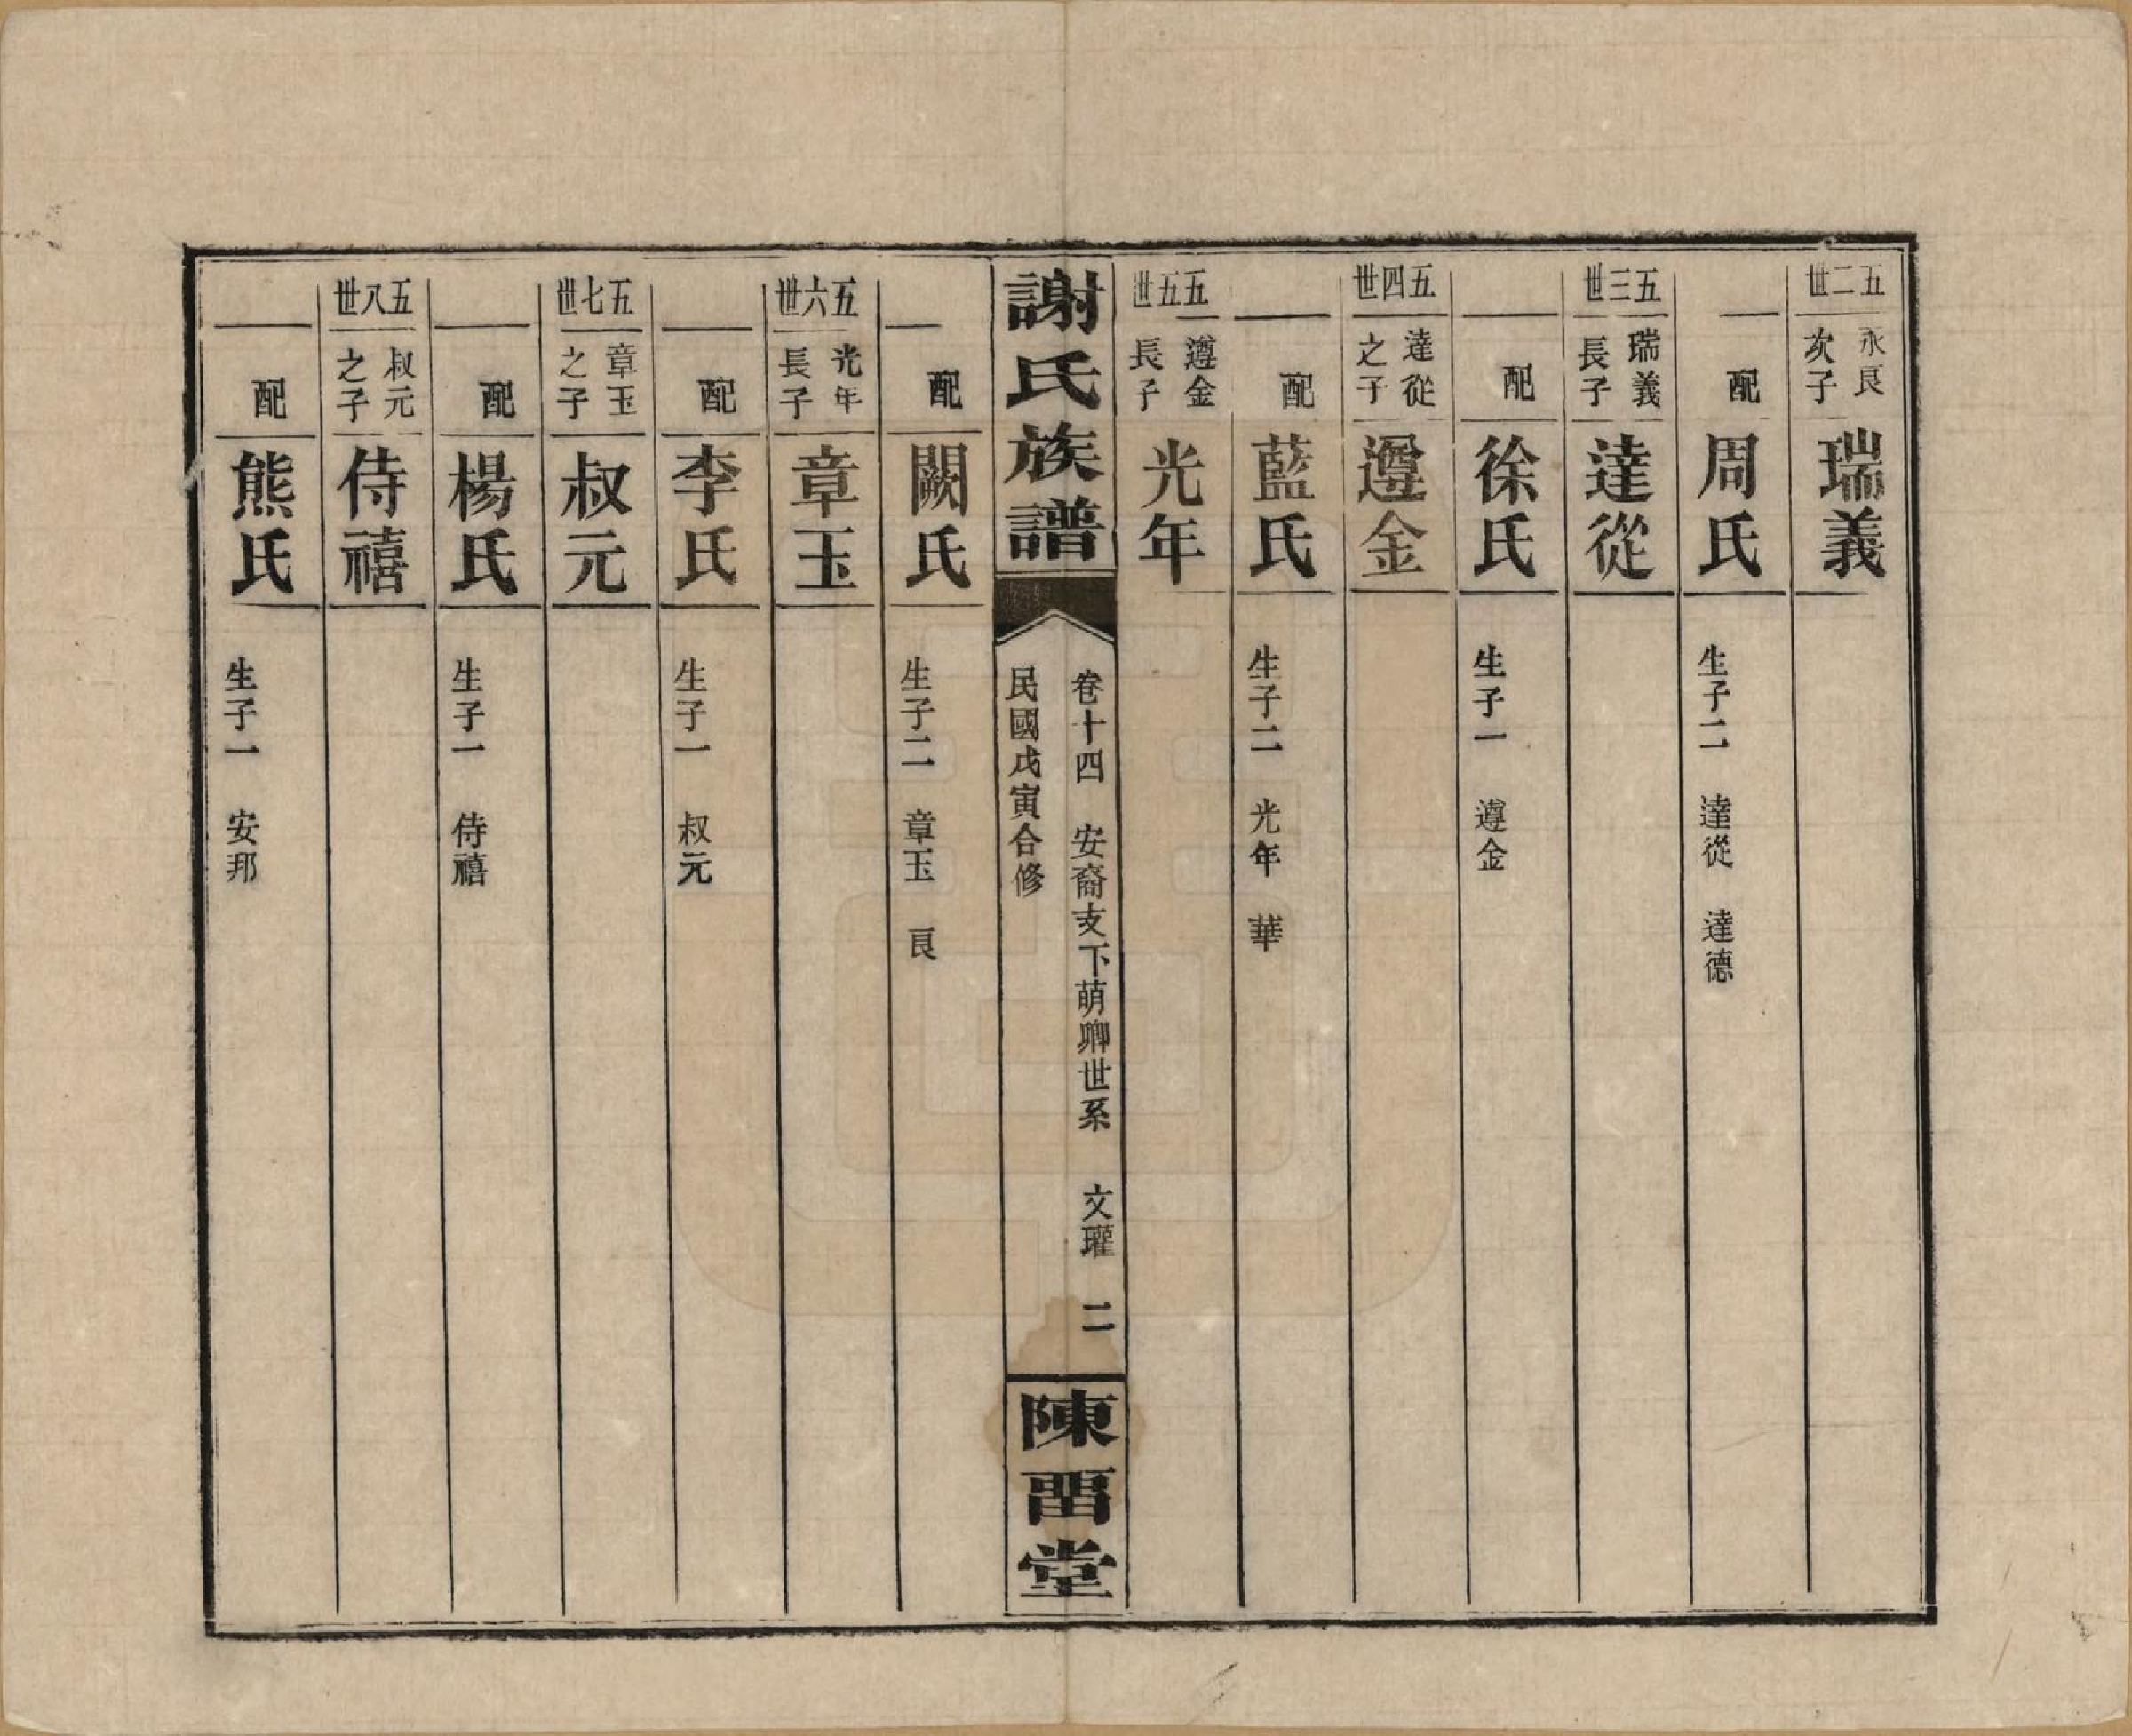 五二世
永良次子
瑞義
配
周氏
生子二 達從 達德
五三世
瑞義長子
達從
配
徐氏
生子一 遵金
五四世
達從之子
遵金
配
藍氏
生子二 光年 華
五五世
遵金長子
光年
謝氏族譜
卷十四 安裔支下萌卿世系 文瓘 二
民國戊寅合修
陳畱堂
配
闕氏
生子二 章玉 良
五六世
光年長子
章玉
配
李氏
生子一 叔元
五七世
章玉之子
叔元
配
楊氏
生子一 侍禧
五八世
叔元之子
侍禧
配
熊氏
生子一 安邦